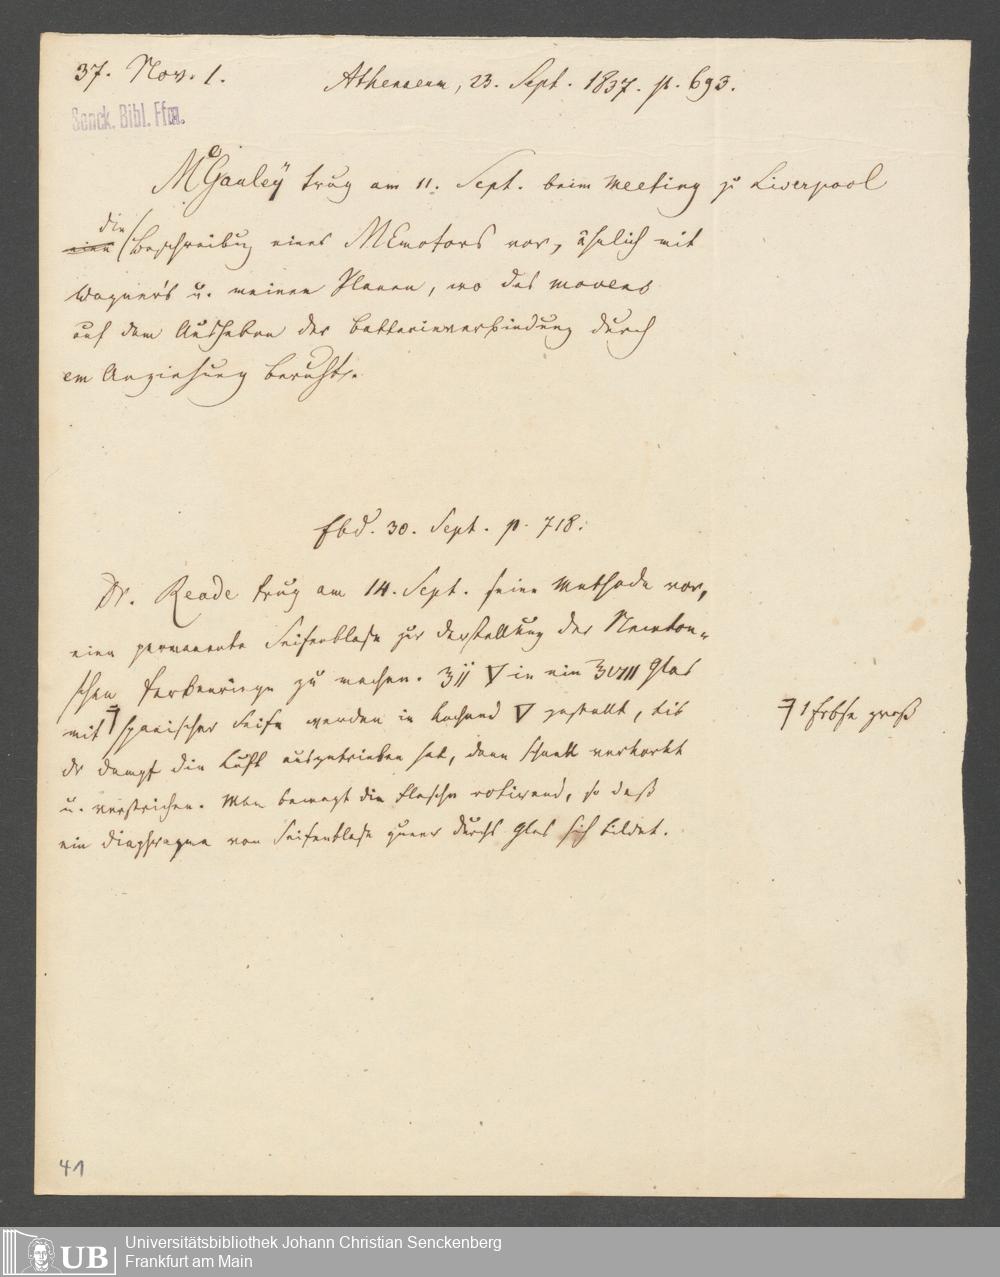 37. Nov. 1.
Athenaeum, 23. Sept. 1837. p. 693.
Senck. Bibl. Ffm.
McGauley trug am 11. Sept. beim Meeting zu Liverpool
die
einen Beschreibung eines MEmotors vor, ähnlich mit
Wagner's u. meinen Planen, wo das movens
auf dem Ausheben der Batterieverbindung durch
em Anziehung beruht.
Ebd. 30. Sept. p. 718.
Dr. Reade trug am 14. Sept. seine Methode vor,
eine permanente Seifenblase zur Darstellung der Newton-
schen Farbenringe zu machen. ʒij ▽ in ein ʒVIII Glas
mit spanischer Seife werden in kochend ▽ gestellt, bis
1 Erbse groß
dr Dampf die Luft ausgetrieben hat, dann schnell verkorkt
u. verstrichen. Man bewegt die Flasche rotirend, so daß
ein Diaphragma von Seifenblase queer durchs Glas sich bildet.
41
UB
Universitätsbibliothek Johann Christian Senckenberg
Frankfurt am Main